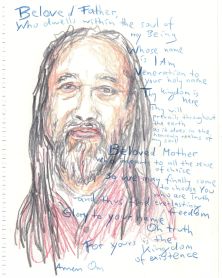 Beloved Father,
Who dwells within the soul of
my Being
Whose name
is I Am
Veneration to
your holy name
Thy kingdom is
here
Thy will
prevails throughout
the earth
as it does in the
Beloved Mother
of choice
So we may finally come
to choose you
who are Truth
and thus find everlasting
freedom
Glory to your name
Oh truth
For yours is the
kingdom
of existence
Amen Om